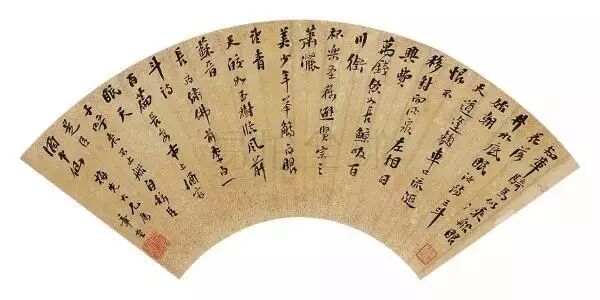 知章
騎馬似乘船眼
花落
井水底眠汝陽三斗
始朝
天道逢麴車口流涎
恨不
移封向酒泉左相日
興費
萬錢飲如長鯨吸百
川銜
杯樂聖稱避賢宗之
蕭灑
美少年舉觴白眼
望青
天皎如玉樹臨風前
蘇晉
長齋繡佛前李白一
斗詩
百篇長安市上酒家
眠天
子呼來不上船自稱臣
是酒中仙
梅先大兄屬